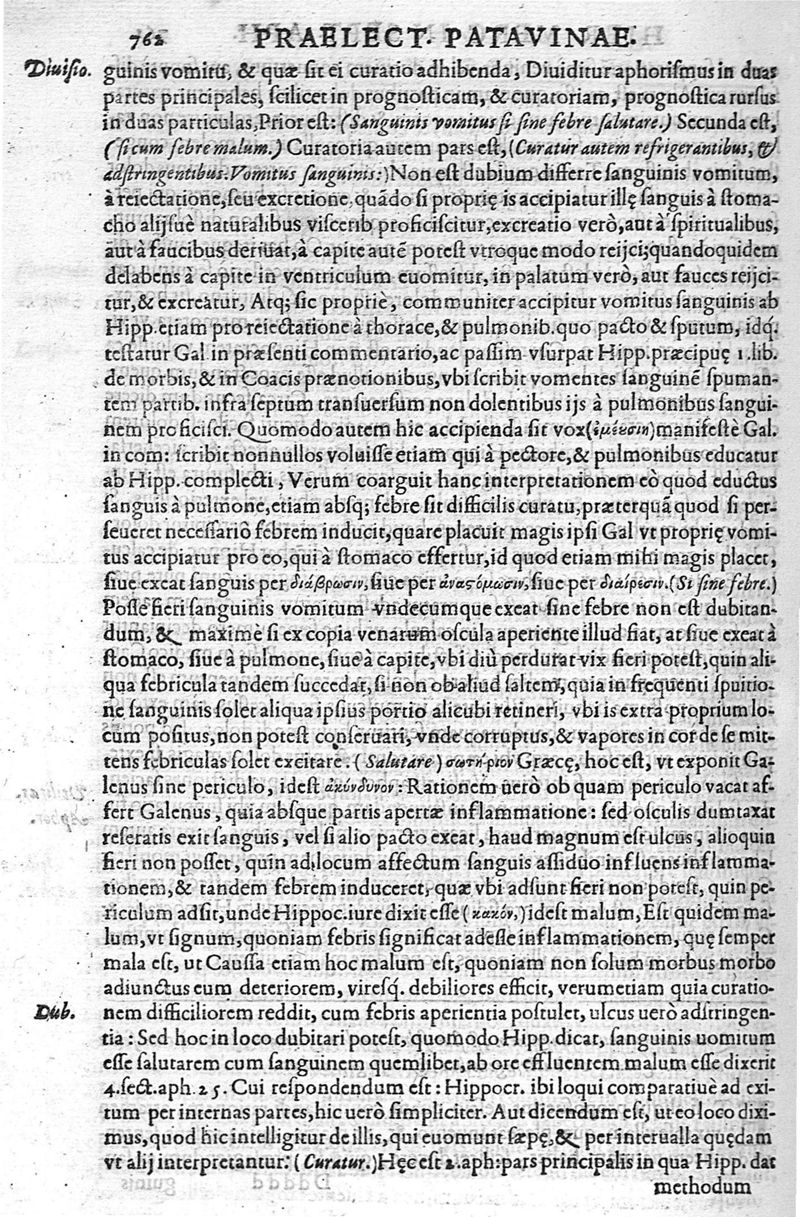 762 PRAELECT. PATAVINAE.
Diuisio. guinis vomitu, & quæ sit ei curatio adhibenda, Diuiditur aphorismus in duas
partes principales, scilicet in prognosticam, & curatoriam, prognostica rursus
in duas particulas, Prior est: (Sanguinis vomitus si sine febre salutare.) Secunda est,
(si cum febre malum.) Curatoria autem pars est, (Curatur autem refrigerantibus, &
adstringentibus: Vomitus sanguinis:) Non est dubium differre sanguinis vomitum,
à reiectatione, seu excretione, quãdo si proprię is accipiatur illę sanguis à stoma-
cho alijsuè naturalibus viscerib proficiscitur, excreatio verò, aut à spiritualibus,
aut à faucibus deriuat, à capite autẽ potest vtroque modo reijci; quandoquidem
delabens à capite in ventriculum euomitur, in palatum verò, aut fauces reijci-
tur, & excreatur, Atq; sic propriè, communiter accipitur vomitus sanguinis ab
Hipp. etiam pro reiectatione à thorace, & pulmonib. quo pacto & sputum, idq́.
testatur Gal in præsenti commentario, ac passim vsurpat Hipp. præcipuę 1. lib.
de morbis, & in Coacis prænotionibus, vbi scribit vomentes sanguinẽ spuman-
tem partib. infra septum transuersum non dolentibus ijs à pulmonibus sangui-
nem proficisci. Quomodo autem hic accipienda sit vox (ἐμέεσιη) manifestè Gal.
in com: scribit nonnullos voluisse etiam qui à pectore, & pulmonibus educatur
ab Hipp. complecti, Verum coarguit hanc interpretationem eò quod eductus
sanguis à pulmone, etiam absq; febre sit difficilis curatu, præterquã quod si per-
seueret necessariò febrem inducit, quare placuit magis ipsi Gal vt proprię vomi-
tus accipiatur pro eo, qui à stomaco effertur, id quod etiam mihi magis placet,
siue exeat sanguis per διάβρωσιν, siue per ἀναςόμωσιν, siue per διαίρεσιν. (Si sine febre.)
Posse fieri sanguinis vomitum vndecumque exeat sine febre non est dubitan-
dum, & maximè si ex copia venarum oscula aperiente illud fiat, at siue exeat à
stomaco, siue à pulmone, siue à capite, vbi diù perdurat vix fieri potest, quin ali-
qua febricula tandem succedat, si non ob aliud saltem, quia in frequenti spuitio-
ne sanguinis solet aliqua ipsius portio alicubi retineri, vbi is extra proprium lo-
cum positus, non potest conseruari, vnde corruptus, & vapores in cor de se mit-
tens febriculas solet excitare. (Salutare) σωτήριον Græcę, hoc est, vt exponit Ga-
lenus sine periculo, idest ἀκύνδυνον: Rationem uerò ob quam periculo vacat af-
fert Galenus, quia absque partis apertæ inflammatione: sed osculis dumtaxat
reseratis exit sanguis, vel si alio pacto exeat, haud magnum est ulcus, alioquin
fieri non posset, quin ad locum affectum sanguis assiduo influens inflamma-
tionem, & tandem febrem induceret, quæ vbi adsunt fieri non potest, quin pe-
riculum adsit, unde Hippoc. iure dixit esse (κακόν,) idest malum, Est quidem ma-
lum, vt signum, quoniam febris significat adesse inflammationem, quę semper
mala est, ut Caussa etiam hoc malum est, quoniam non solum morbus morbo
adiunctus eum deteriorem, viresq́. debiliores efficit, verumetiam quia curatio-
Dub. nem difficiliorem reddit, cum febris aperientia postulet, ulcus uerò adstringen-
tia: Sed hoc in loco dubitari potest, quomodo Hipp. dicat, sanguinis uomitum
esse salutarem cum sanguinem quemlibet, ab ore effluentem malum esse dixerit
4. sect. aph. 25. Cui respondendum est: Hippocr. ibi loqui comparatiuè ad exi-
tum per internas partes, hic uerò simpliciter. Aut dicendum est, ut eo loco dixi-
mus, quod hic intelligitur de illis, qui euomunt sæpę, & per interualla quędam
vt alij interpretantur: (Curatur.) Hęc est 2. aph: pars principalis in qua Hipp. dat
methodum